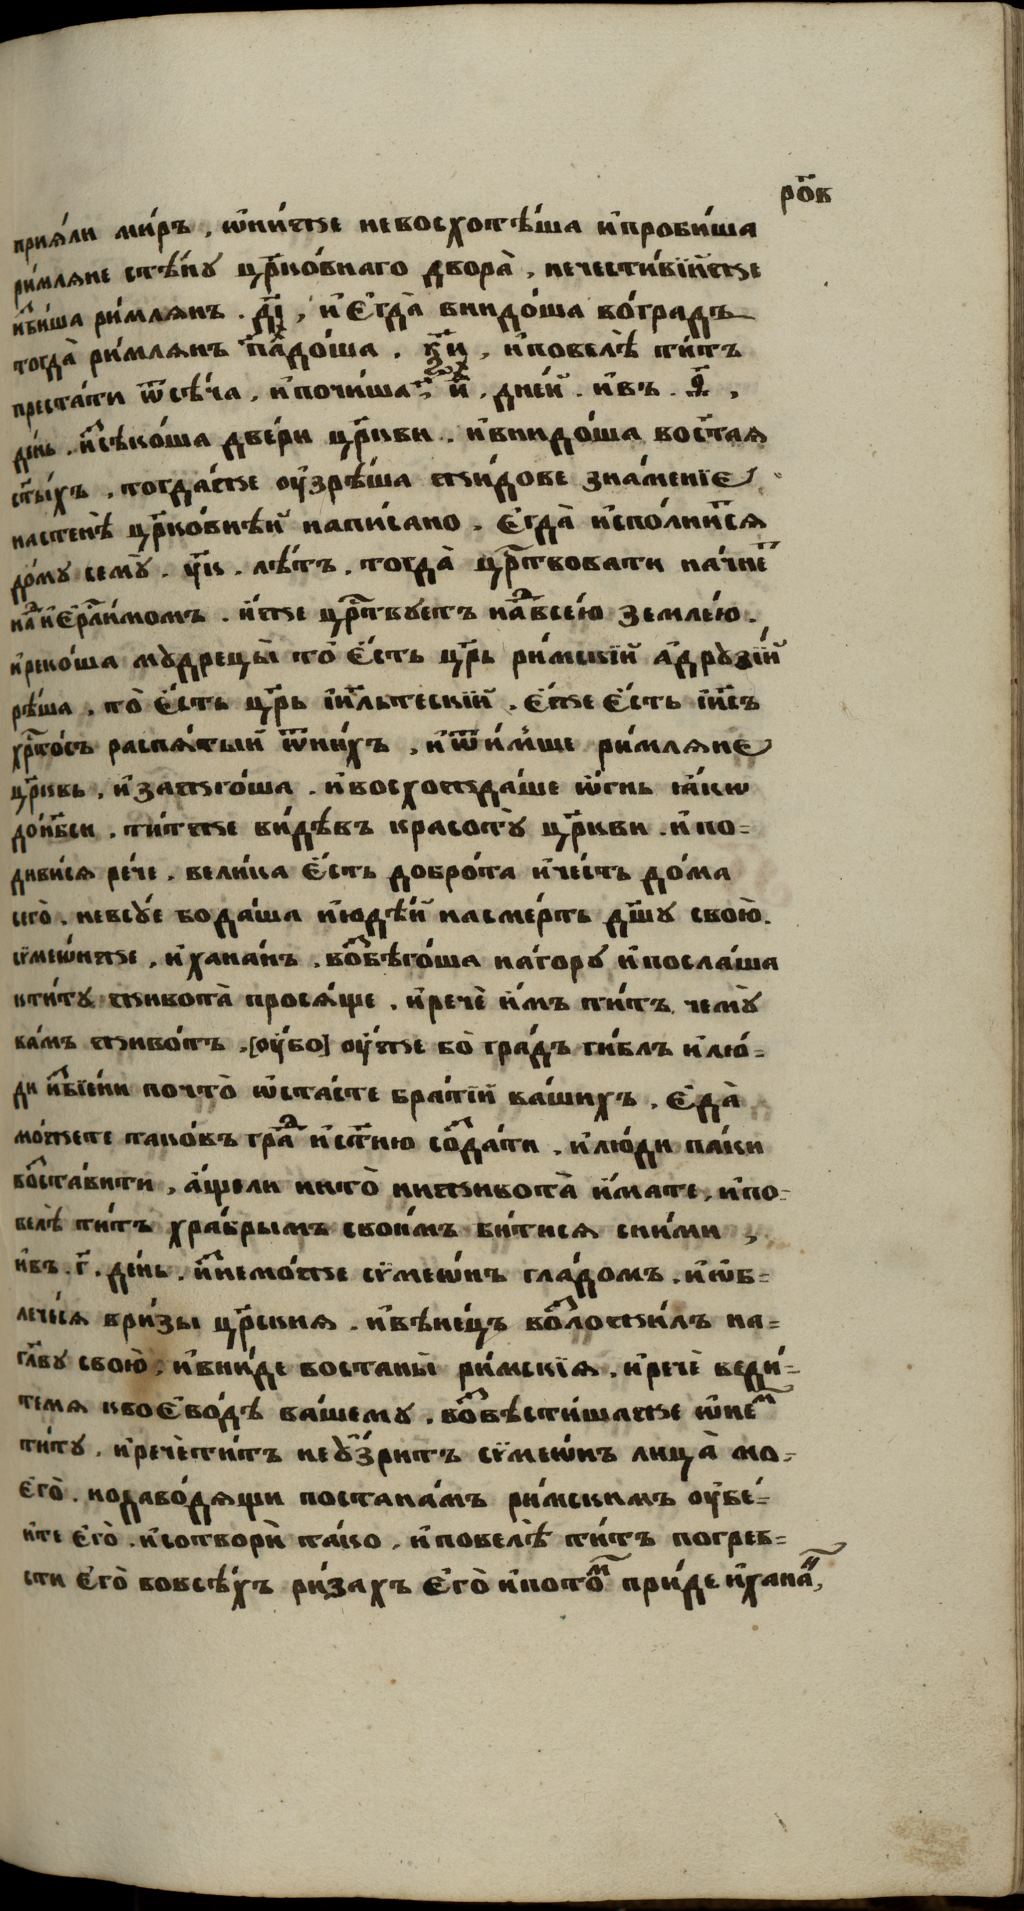 ро҃в
прїѧ́ли ми́ръ , ѡни́же невосхотѣ́ша и҆проби́ша
ри́млѧне стѣ́нꙋ цр҃ко́внаго двора̀ , нечести́вїиже
и҆зби́ша ри́млѧнъ . д҃і , и҆ є҆гда̀ внидо́ша во́градъ
тогда̀ ри́млѧнъ падо́ша . к҃и , и҆повелѣ̀ ти́тъ
преста́ти ѿсѣ́ча , и҆почи́ша , и҃ . дне́й . и҆въ . ѳ҃ ,
де́нь . и҆ссѣко́ша две́ри цр҃кви . и҆внидо́ша вост҃аѧ
ст҃ы́хъ , тогда́же ᲂу҆зрѣ́ша жи́дове зна́менїе
настенѣ̀ цр҃ко́внѣй напи́сано . є҆гда̀ и҆спо́лнитсѧ
до́мꙋ семꙋ̀ . у҃к . лѣ́тъ . тогда̀ цр҃твовати на́чнет
над и҆є҆рл҃и́момъ . и҆́же цр҃твꙋетъ надвсе́ю земле́ю .
и҆реко́ша мꙋдрецы̀ то̀ є҆́сть цр҃ь ри́мскїй а҆дрꙋзі́и
рѣ́ша . то̀ є҆́сть цр҃ь і҆и҃льтескїй . є҆́же є҆́сть і҆и҃съ
хр҃то́съ распѧ́тый ѿни́хъ , и҆ѿи́мше ри́млѧне
цр҃ковь , и҆зажго́ша . и҆восхожда́ше ѻ҆́гнь ꙗ҆́кѡ
донб҃си . ти́тже ви́дѣвъ красотꙋ̀ цр҃кви . и҆по=
диви́сѧ ре́че . вели́ка є҆́сть добро́та и҆че́сть до́ма
сего̀ . невсꙋ́е вода́ша и҆юдѣ́й насме́рть дш҃ꙋ свою̀ .
сѵмеѡ́нже , и҆ хана́нъ . возбѣго́ша на́горꙋ и҆посла́ша
кти́тꙋ живота̀ просѧ́ще . и҆речѐ и҆́мъ ти́тъ чемꙋ̀
ва́мъ живо́тъ . [ᲂу҆́бо] ᲂу҆́же бо̀ гра́дъ ги́блъ и҆лю́=
ди и҆збїе́ни почто̀ ѡ҆ста́сте бра́тїй ва́шихъ . є҆да̀
мо́жете тако́въ гра́д и҆ст҃ню созда́ти . и҆лю́ди па́ки
возста́вити , а҆́щели нито̀ ниживота̀ и҆́мате . и҆по=
велѣ̀ ти́тъ хра́брымъ свои́мъ би́тисѧ сни́ми ,
и҆въ . г҃ . де́нь . и҆знемо́же сѵмеѡ́нъ гла́домъ . и҆ѡ҆б=
лечи́сѧ ври́зы цр҃скиѧ . и҆вѣне́цъ возложи́лъ на=
гл҃вꙋ свою̀ , и҆вни́де востаны̀ ри́мскїѧ . и҆речѐ веди́=
темѧ квоево́дѣ ва́шемꙋ . возвѣсти́шаже ѡ҆нем
ти́тꙋ . и҆речѐти́тъ неꙋ҆́зритъ сѵмеѡ́нъ лица̀ мо=
є҆го̀ . нодаво́дѧщи постана́мъ ри́мскимъ ᲂу҆бе́=
и҆те є҆го̀ . и҆сотворѝ та́ко , и҆повелѣ̀ ти́тъ погреб=
сти є҆го̀ вовсѣ́хъ ри́захъ є҆го̀ и҆пото́м прїи́де и҆хана́н ,